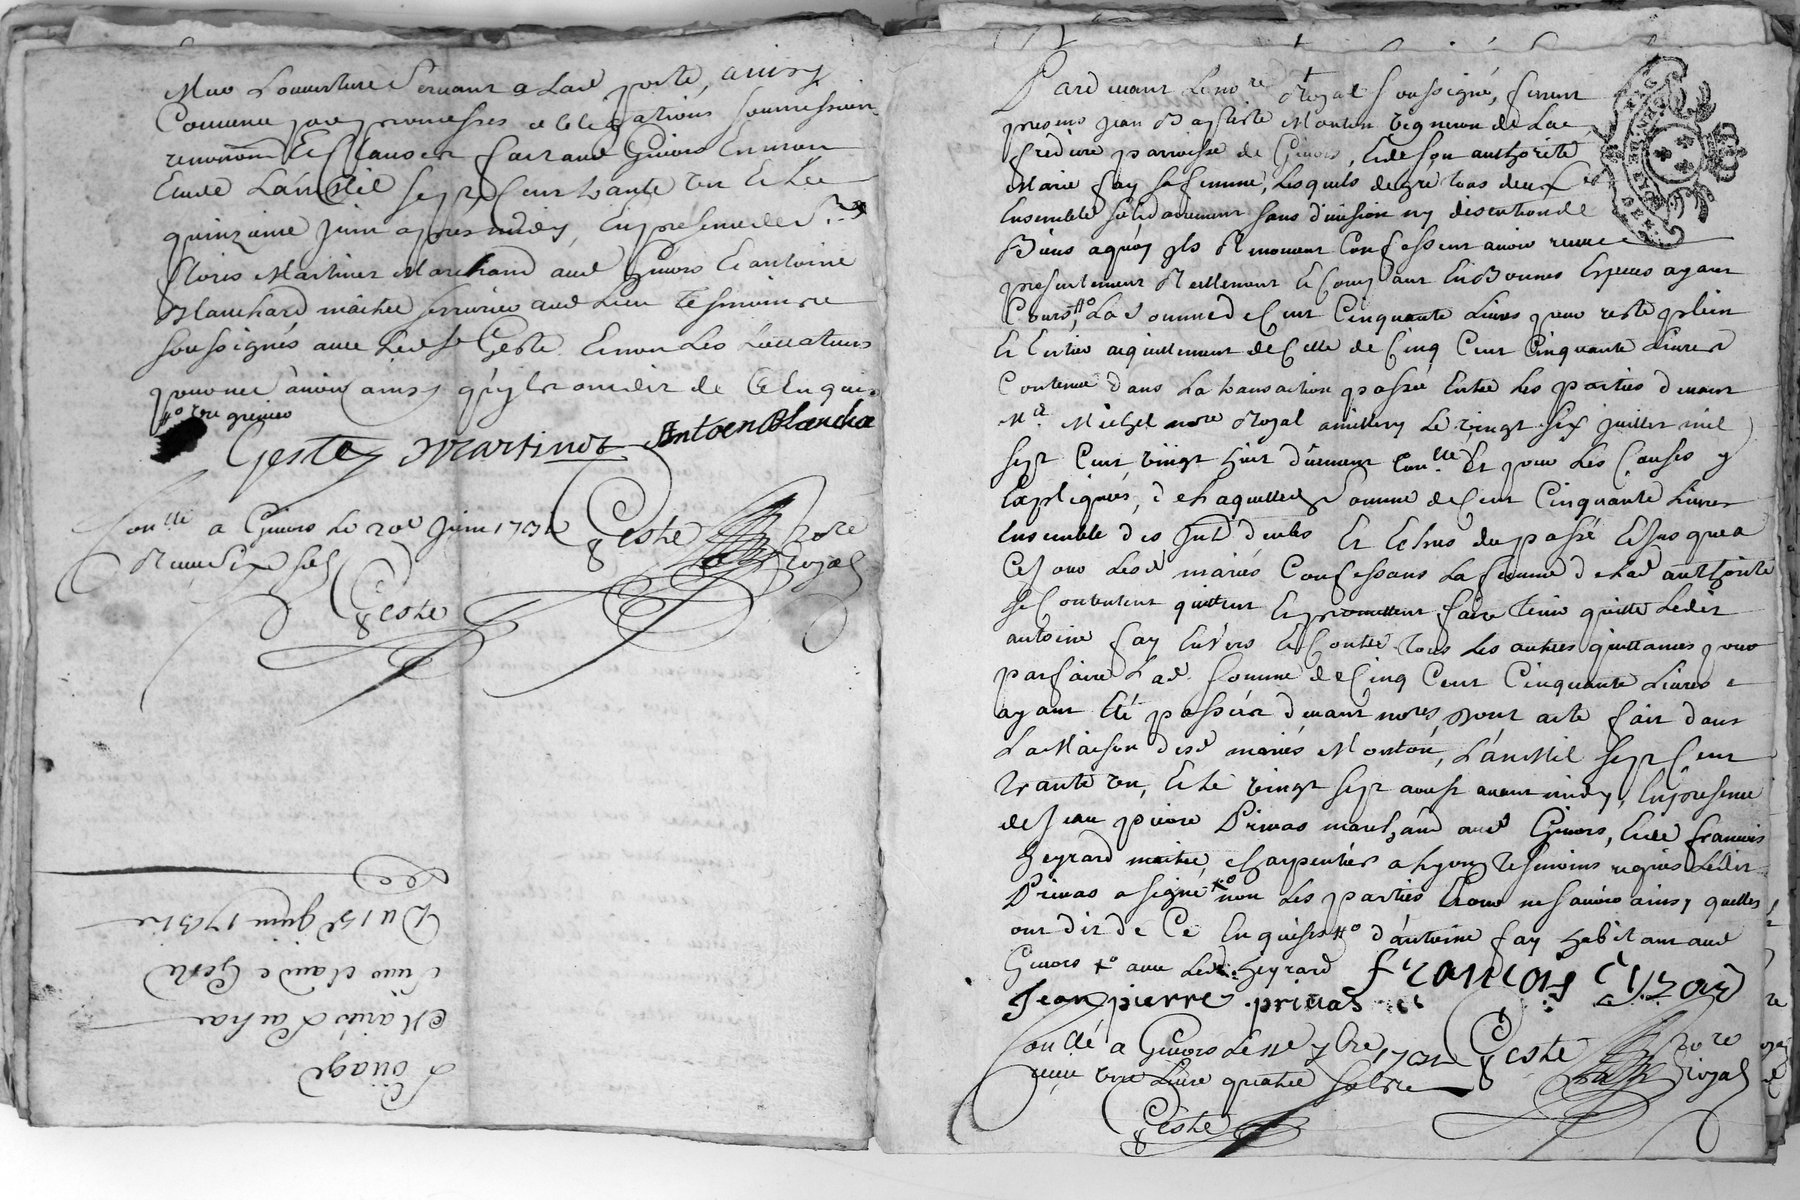 ouverture servant a lad porte, ainsy
Convenu par promesses obligations soumissions
renon.on Et Clauses fait aud Givors En mon
Etude L'an Mil sept Cent trante un Et Le
quinzieme juin apres midy, En presence de Sr
Floris Martinet Marchand aud Givors Et antoine
Blanchard, maitre serrurier aud Lieu tesmoins
soussignés avec Led Sr Geste Et non Les
pour ne sçavoir ainsy qu'ils ont dit de Ce Enquis
Geste Martinet Antoen Blancha
Con.llé a Givors Le 20e Juin 1731 Geste nore
Receu six sols royal
Geste
Du 15e juin 1731
Louage
Pardevant Le no.re Royal soussigné, furent
presens Jean Baptiste Monton vigneron de La
fredière parroisse de Givors, Et de son authorité
Marie fay sa femme, Lesquels de gré tous deux
Ensemble solidairement sans division ny discution de
Biens a quoy ils Renoncent Confessent avoir receu
presentement Reellement Et Comptant En Bonnes Especes ayant
Cours, La somme de Cent Cinquante Livres pour reste plein
Et Entier acquittement de Celle de Cinq Cent Cinquante Livres
Contenue dans La transaction passée Entre Les parties devant
Me. Michel nore Royal a millery Le vingt six juillet mil
sept Cent vingt huit düement Con.llée Et pour Les Causes y
Expliquées, de Laquelle somme de Cent Cinquante Livres
Ensemble des Int. deubs Et Echus du passé Et jusques a
Ce jour Lesd mariés Confessans La femme de lad authorité
se Contentent quittent Et promettent faire tenir quitte Ledit
antoine fay Envers Et Contre tous Les autres quittances pour
parfaire Lad. somme de Cinq Cent Cinquante Livres
ayant Eté passées devant nores, Dont acte fait dans
La Maison desd mariés Monton, L'an Mil sept Cent
trante un, Et Le vingt sept aoust avant midy, En presence
de Jean pierre Privas marchand aud Givors, Et de francois
Geyrard maitre charpentier a Lyon tesmoins requis Ledit
Privas a signé non Les parties pour ne sçavoir ainsy quelles
ont dit de Ce Enquises d'antoine fay habitant aud
Givors avec Led. Geyrard francois
Jean pierre privas
Con.llé a Givors Le 11e 7bre 1731 Geste nore
receu une Livre quatre sols royal
Geste